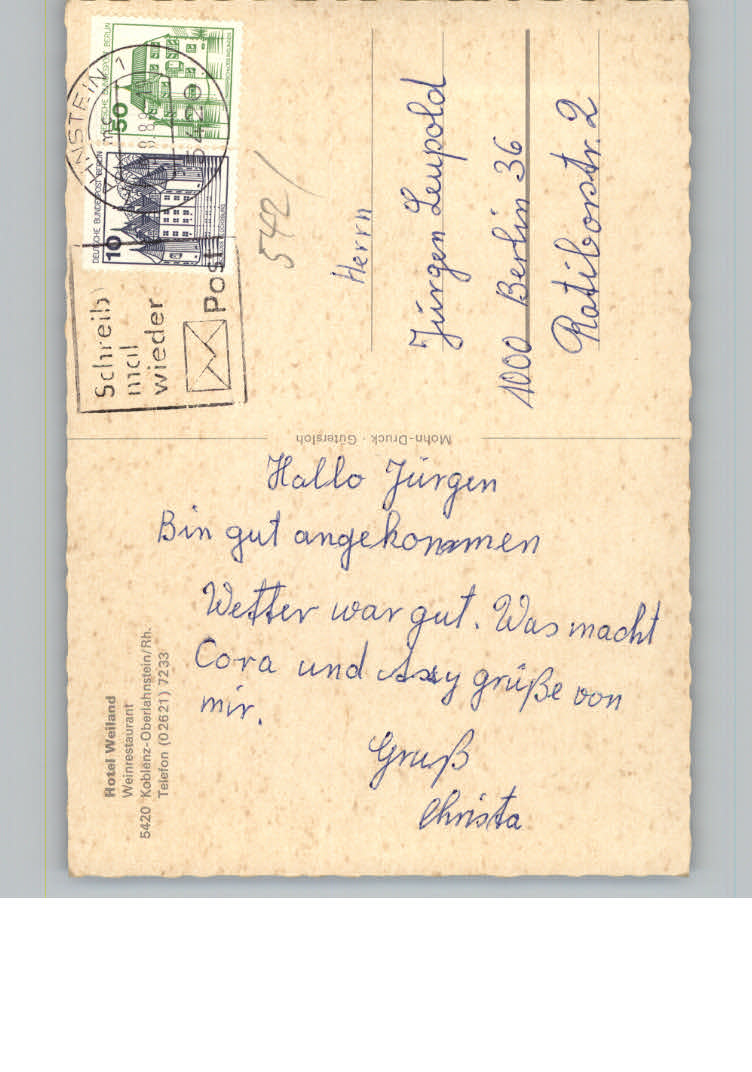 Hotel Weiland
Weinrestaurant
5420 Koblenz-Oberlahnstein/Rh.
Telefon (02621) 7233
Hallo Jürgen
Bin gut angekommen
Wetter war gut. Was macht
Cora und grüße von
mir.
Gruß
Christa
Mohn-Druck · Gütersloh
DEUTSCHE BUNDESPOST BERLIN
10
DEUTSCHE BUNDESPOST BERLIN
50
HNSTEIN 1
5420
Schreib
mal
wieder
Post
542/
Herrn
Jürgen Leupold
1000 Berlin 36
Ratiborstr. 2